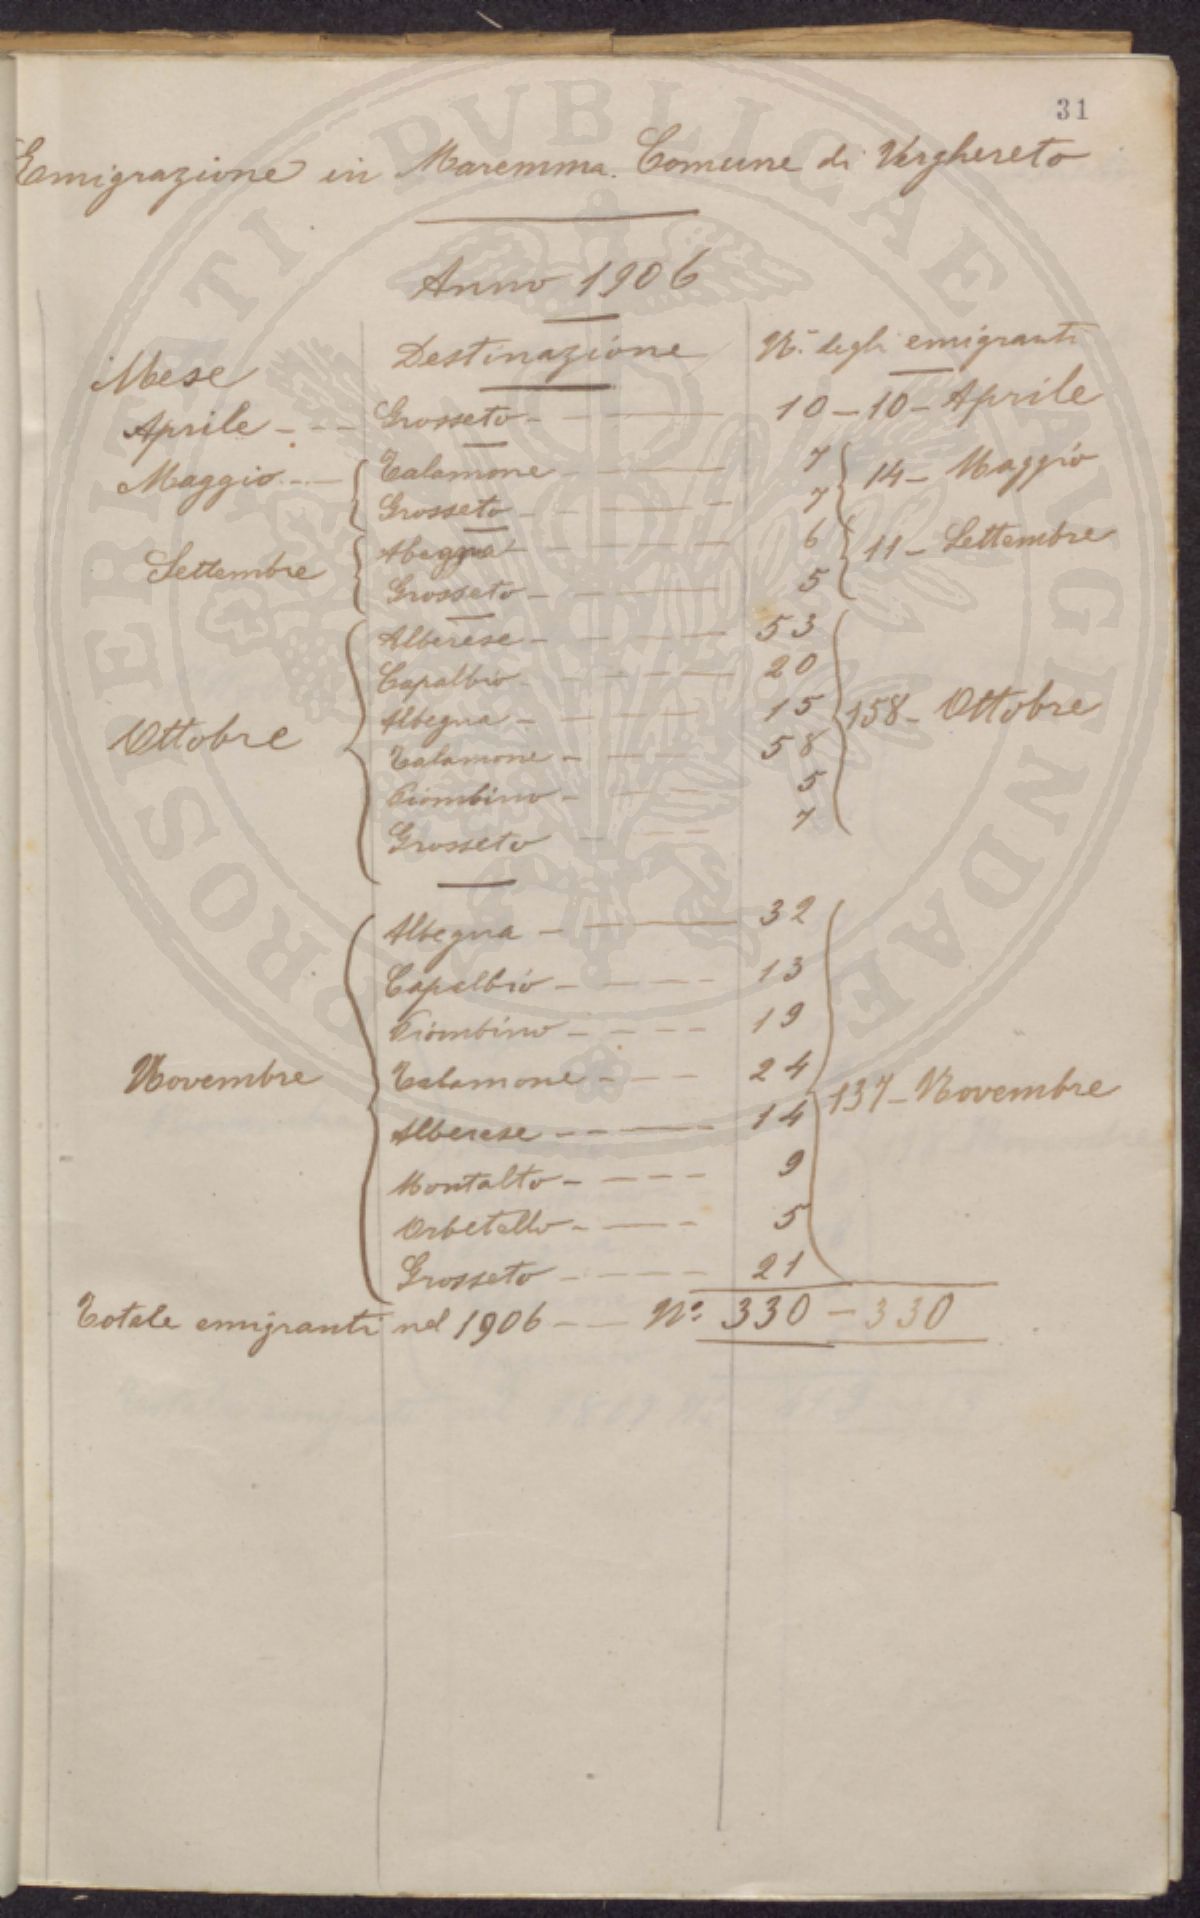 31
Emigrazione in Maremma. Comune di Verghereto
Anno 1906
Mese Destinazione N.° degli emigranti
Aprile - - - Grosseto - - - 10 - 10 - Aprile
Maggio - - - { Talamone - - - 7 } 14 - Maggio
Grosseto - - - 7
Settembre { Abegna - - - 6 } 11 - Settembre
Grosseto - - - 5
Ottobre { Alberese - - - 53 } 158 - Ottobre
Capalbio - - - 20
Albegna - - - 15
Talamone - - - 58
Piombino - - - 5
Grosseto - - - 7
Novembre { Albegna - - - 32 } 137 - Novembre
Capalbio - - - 13
Piombino - - - 19
Talamone - - - 24
Alberese - - - 14
Montalto - - - 9
Orbetello - - - 5
Grosseto - - - 21
Totale emigranti nel 1906 - - N.° 330 - 330
PROSPERITATI PVBLICAE AVGENDAE